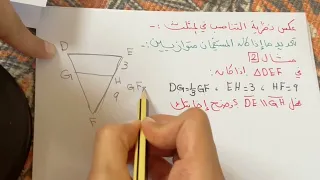 عكس نظرية التناسب في المثلث :-
تحديد ما إذا كان المستقيمان متوازيين :-
مثال 2
في ΔDEF إذا كان :
DG=⅓GF ، EH=3 ، HF=9
هل DE // GH وضح إجابتك
D
E
3
G
H
9
F
GF